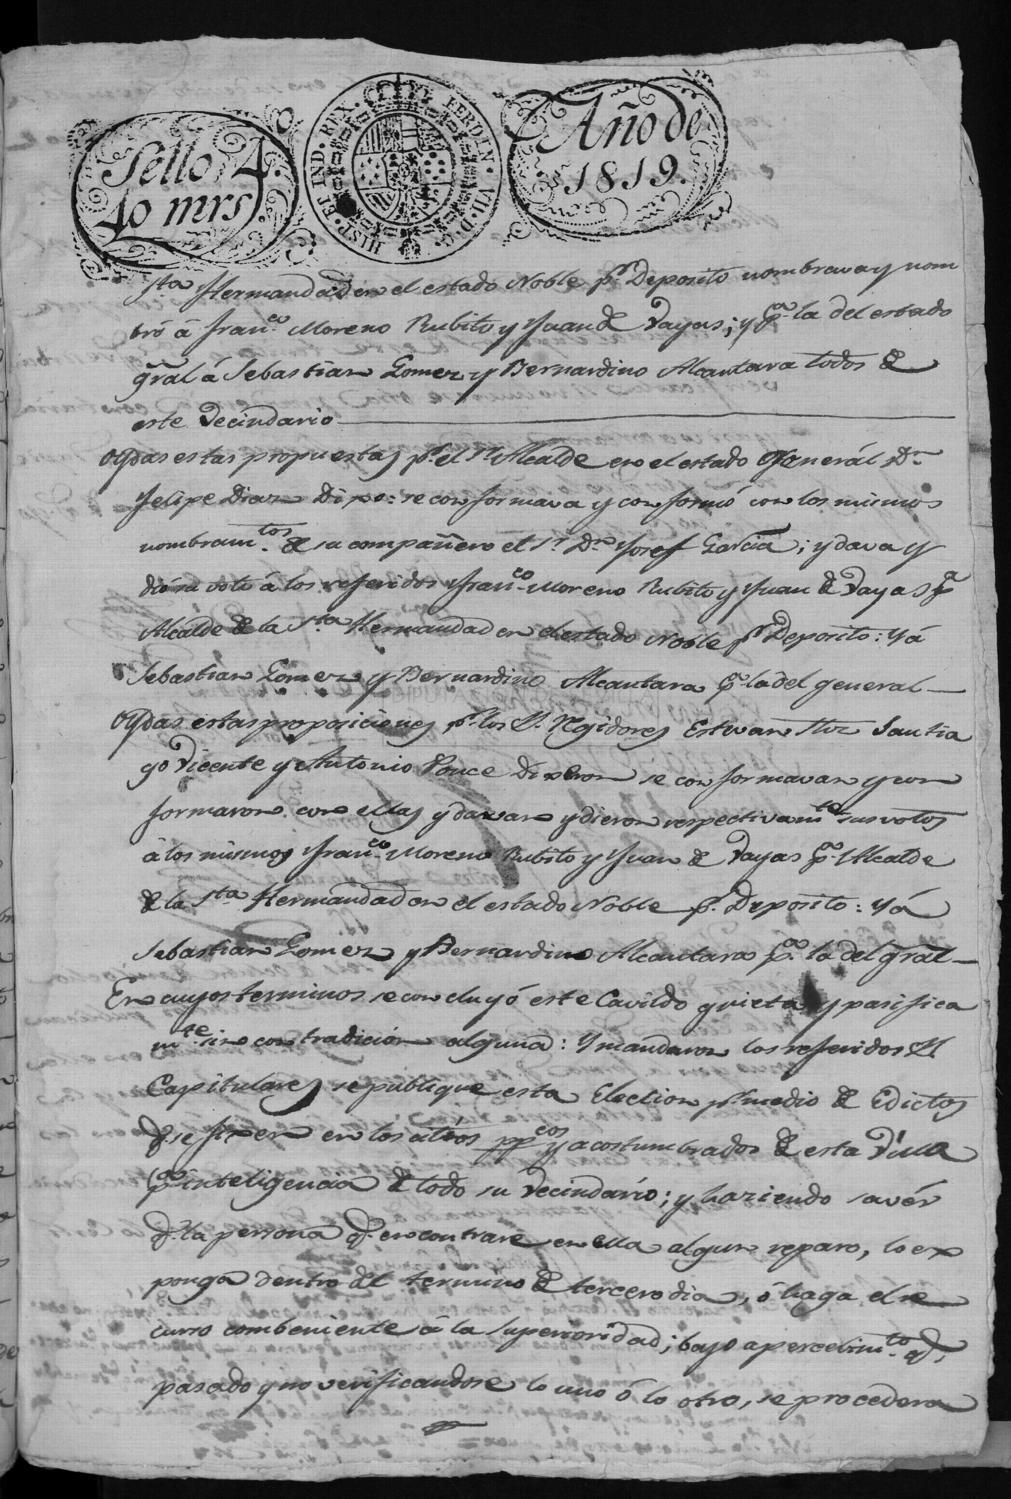 Sello 4.
40 mrs
HISP. ET IND. REX. FERDIN. VII. D. G.
Año de
1819.
Sta Hermandad en el estado Noble pr Deposito nombrava y nom
bró á Franco. Moreno Rubito y Juan de Vayas; y pa. la del estado
gral á Sebastian Gomez y Bernardino Alcantara todos de
este Vecindario
Oydas estas propuestas pr. el Sr Alcalde en el estado General Dn
Felipe Diaz Dixo: se conformava y conformó con los mismos
nombramtos. de su compañero el Sr. Dn Josef Garcia; y dava y
dió su voto á los referidos Franco. Moreno Rubito y Juan de Vayas pa
Alcalde de la Sta Hermandad en el estado Noble pr Deposito: Yá
Sebastian Gomez y Bernardino Alcantara pa. la del general
Oydas estas proposiciones pr. los SS. Regidores Estevan Santia
go Vicente y Antonio Ponce dixeron se conformavan y con
formaron con ellas y davan y dieron respectivamte sus votos
á los mismos Franco. Moreno Rubito y Juan de Vayas pa. Alcalde
de la Sta Hermandad en el estado Noble pr. Deposito: Yá
Sebastian Gomez y Bernardino Alcantara pa. la del gral
En cuyos terminos se concluyó este Cavildo quieta y pacifica
mte sin contradición alguna: Y mandaron los referidos SS.
Capitulares se publique esta Eleccion pr medio de Edictos
q. se fixen en los sitios ppcos y acostumbrados de esta Villa
pa inteligencia de todo su Vecindario; y haziendo savér
q. la persona q. encontrare en ella algun reparo, lo ex
ponga dentro del termino de tercero dia, ó haga el re
curso combeniente á la superioridad; bajo apercebimto. q.
pasado y no verificandose lo uno ó lo otro, se procedera